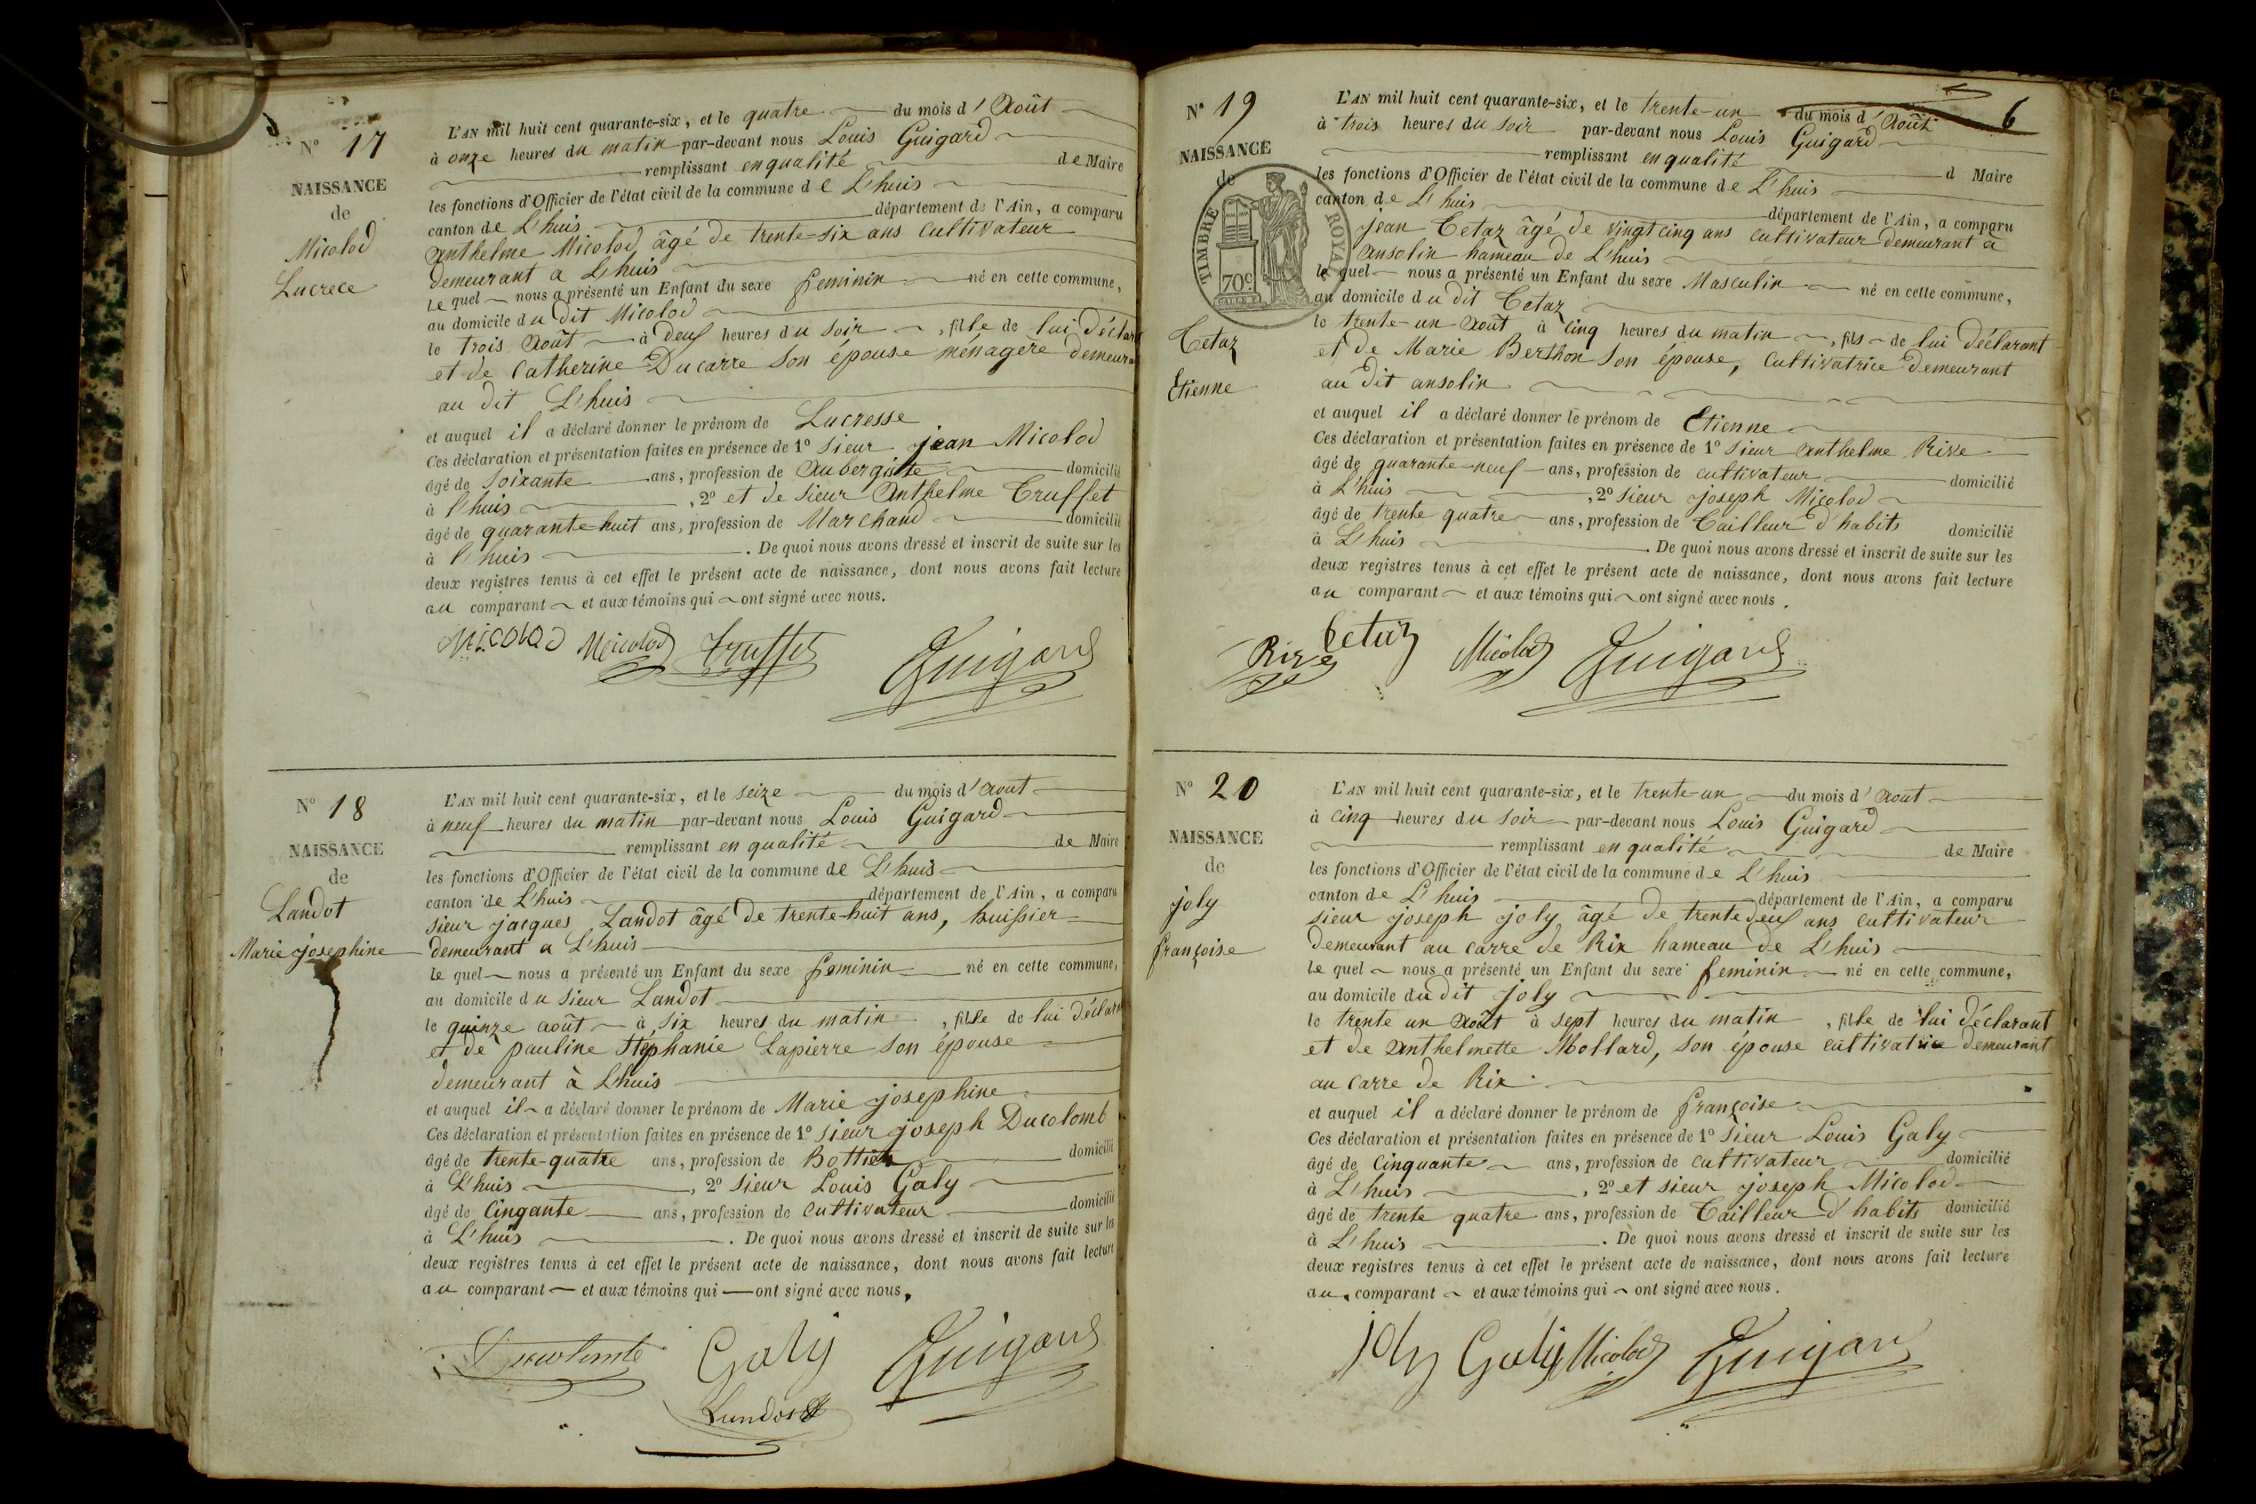 N° 17
NAISSANCE
de
Micolod
Lucrece
L'AN mil huit cent quarante-six, et le quatre du mois d'Août
à onze heures du matin par-devant nous Louis Guigard
remplissant en qualité de Maire
les fonctions d'Officier de l'état civil de la commune de L'huis
canton de L'huis département de l'Ain, a comparu
Anthelme Micolod âgé de trente-six ans cultivateur
demeurant a L'huis
le quel nous a présenté un Enfant du sexe feminin né en cette commune,
au domicile du dit Micolod
le trois Août à deuf heures du soir, fille de lui déclara
et de Catherine Ducarre son épouse ménagère demeura
au dit L'huis
et auquel il a déclaré donner le prénom de Lucresse
Ces déclaration et présentation faites en présence de 1° sieur jean Micolod
âgé de soixante ans, profession de Aubergiste domicilié
à l'huis, 2° et de sieur Anthelme Truffet
âgé de quarante-huit ans, profession de Marchand domicilié
à l'huis. De quoi nous avons dressé et inscrit de suite sur les
deux registres tenus à cet effet le présent acte de naissance, dont nous avons fait lecture
au comparant et aux témoins qui ont signé avec nous.
Micolod Micolod Truffet Guigard
N° 18
NAISSANCE
de
Landot
Marie josephine
L'AN mil huit cent quarante-six, et le seize du mois d'Aout
à neuf heures du matin par-devant nous Louis Guigard
remplissant en qualité de Maire
les fonctions d'Officier de l'état civil de la commune de L'huis
canton de L'huis département de l'Ain, a comparu
sieur jacques Landot âgé de trente-huit ans, huissier
demeurant a L'huis
le quel nous a présenté un Enfant du sexe feminin né en cette commune,
au domicile du sieur Landot
le quinze août à six heures du matin, fille de lui déclara
et de pauline Stéphanie Lapierre son épouse
demeurant à L'huis
et auquel il a déclaré donner le prénom de Marie josephine
Ces déclaration et présentation faites en présence de 1° sieur joseph Ducolomb
âgé de trente-quatre ans, profession de Bottier domicilié
à L'huis, 2° sieur Louis Galy
âgé de Cinqante ans, profession de cultivateur domicilié
à L'huis. De quoi nous avons dressé et inscrit de suite sur les
deux registres tenus à cet effet le présent acte de naissance, dont nous avons fait lecture
au comparant et aux témoins qui ont signé avec nous.
Galy Guigard
Landot
6
N° 19
NAISSANCE
de
TIMBRE ROYAL
70c.
Cetaz
Etienne
L'AN mil huit cent quarante-six, et le trente-un du mois d'Août
à trois heures du soir par-devant nous Louis Guigard
remplissant en qualité d Maire
les fonctions d'Officier de l'état civil de la commune de L'huis
canton de L'huis département de l'Ain, a comparu
jean Cetaz âgé de vingt cinq ans cultivateur demeurant a
Ansolin hameau de L'huis
le quel nous a présenté un Enfant du sexe Masculin né en cette commune,
au domicile du dit Cetaz
le trente-un Août à cinq heures du matin, fils de lui déclarant
et de Marie Berthon son épouse, cultivatrice demeurant
au dit ansolin
et auquel il a déclaré donner le prénom de Etienne
Ces déclaration et présentation faites en présence de 1° sieur Anthelme Rive
âgé de quarante-neuf ans, profession de cultivateur domicilié
à L'huis, 2° sieur joseph Micolod
âgé de trente quatre ans, profession de Tailleur d'habits domicilié
à L'huis. De quoi nous avons dressé et inscrit de suite sur les
deux registres tenus à cet effet le présent acte de naissance, dont nous avons fait lecture
au comparant et aux témoins qui ont signé avec nous.
Rive Cetaz Micolod Guigard
N° 20
NAISSANCE
de
joly
françoise
L'AN mil huit cent quarante-six, et le trente-un du mois d'Aout
à cinq heures du soir par-devant nous Louis Guigard
remplissant en qualité de Maire
les fonctions d'Officier de l'état civil de la commune de L'huis
canton de L'huis département de l'Ain, a comparu
sieur joseph joly âgé de trente deuf ans cultivateur
demeurant au carre de Rix hameau de L'huis
le quel nous a présenté un Enfant du sexe feminin né en cette commune,
au domicile du dit joly
le trente un Août à sept heures du matin, fille de lui déclarant
et de Anthelmette Mollard, son épouse cultivatrice demeurant
au carre de Rix
et auquel il a déclaré donner le prénom de françoise
Ces déclaration et présentation faites en présence de 1° sieur Louis Galy
âgé de Cinquante ans, profession de cultivateur domicilié
à L'huis, 2° et sieur joseph Micolod
âgé de trente quatre ans, profession de Tailleur d'habits domicilié
à L'huis. De quoi nous avons dressé et inscrit de suite sur les
deux registres tenus à cet effet le présent acte de naissance, dont nous avons fait lecture
au comparant et aux témoins qui ont signé avec nous.
joly Galy Micolod Guigard